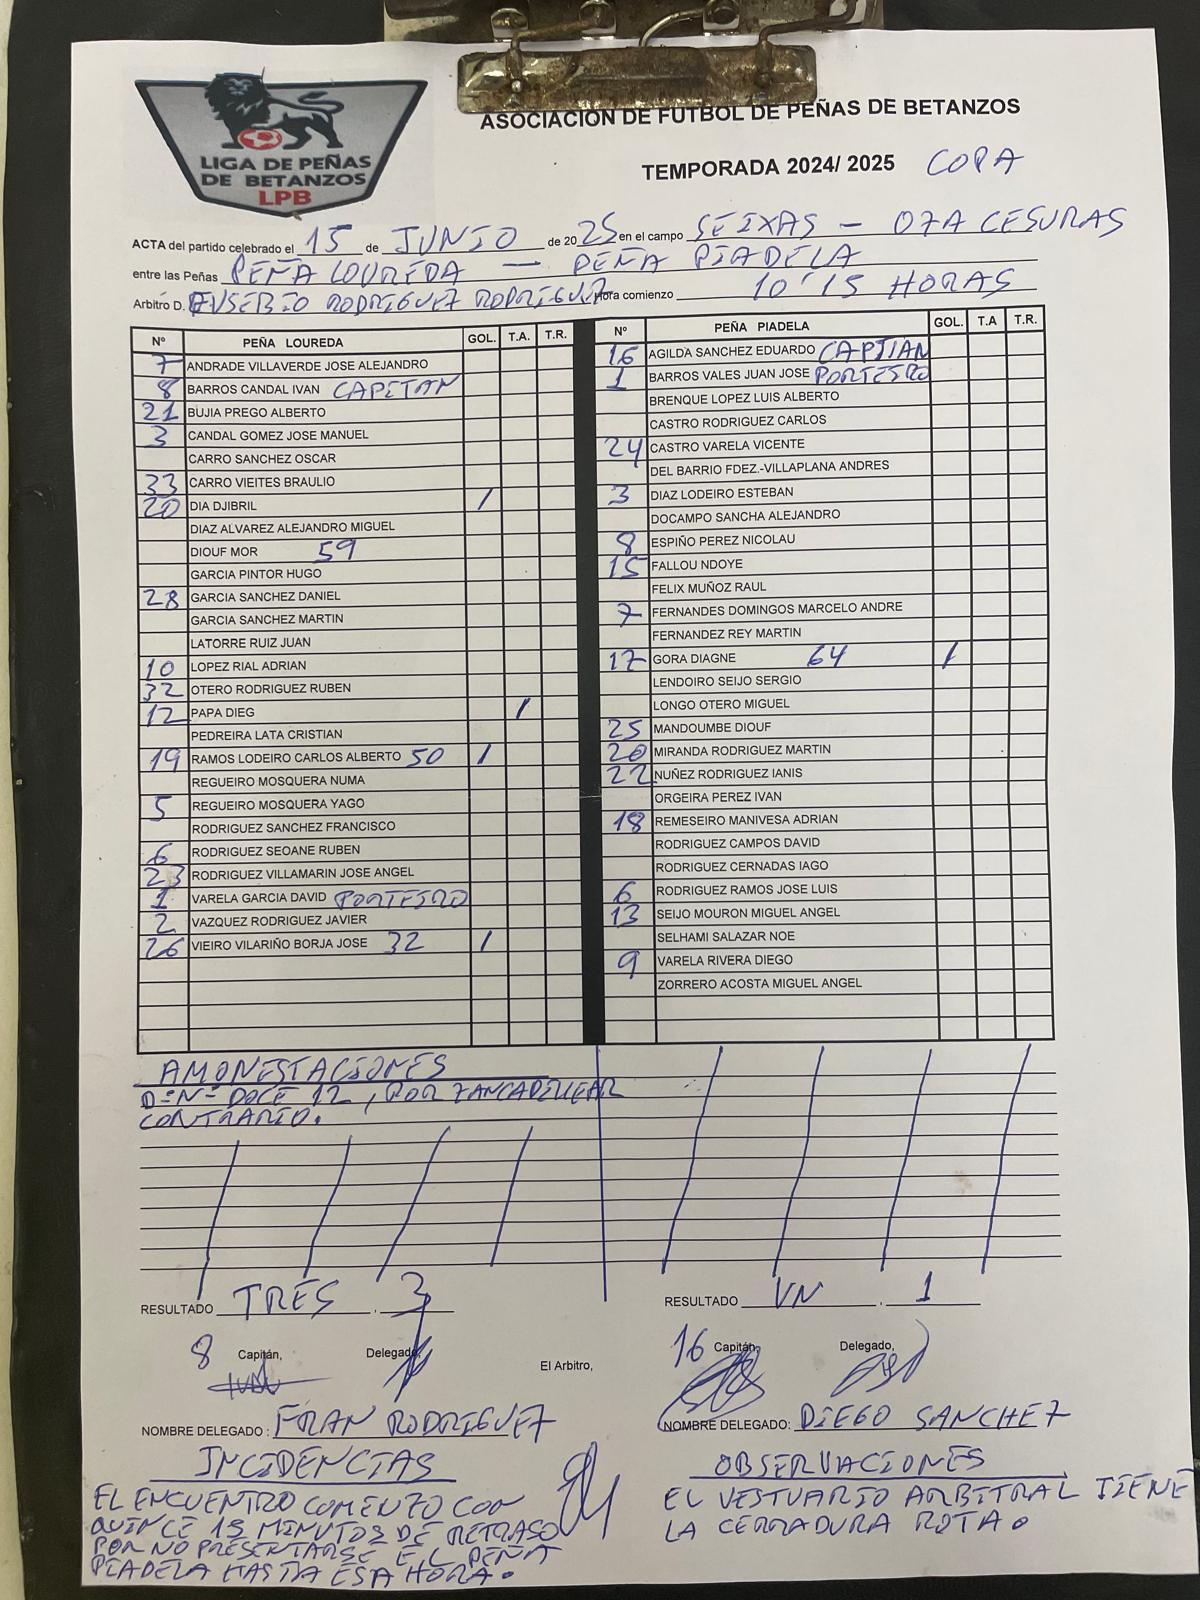 LIGA DE PEÑAS
DE BETANZOS
LPB
ASOCIACION DE FUTBOL DE PEÑAS DE BETANZOS
TEMPORADA 2024/ 2025 COPA
ACTA del partido celebrado el 15 de JUNIO de 2025 en el campo SEIXAS - OZA CESURAS
entre las Peñas PEÑA LOUREDA — PEÑA PIADELA
Arbitro D. EUSEBIO RODRIGUEZ RODRIGUEZ Hora comienzo 10'15 HORAS
Nº PEÑA LOUREDA GOL. T.A. T.R.
7 ANDRADE VILLAVERDE JOSE ALEJANDRO
8 BARROS CANDAL IVAN CAPITAN
21 BUJIA PREGO ALBERTO
3 CANDAL GOMEZ JOSE MANUEL
CARRO SANCHEZ OSCAR
33 CARRO VIEITES BRAULIO
20 DIA DJIBRIL 1
DIAZ ALVAREZ ALEJANDRO MIGUEL
DIOUF MOR 59
GARCIA PINTOR HUGO
28 GARCIA SANCHEZ DANIEL
GARCIA SANCHEZ MARTIN
LATORRE RUIZ JUAN
10 LOPEZ RIAL ADRIAN
32 OTERO RODRIGUEZ RUBEN
12 PAPA DIEG 1
PEDREIRA LATA CRISTIAN
19 RAMOS LODEIRO CARLOS ALBERTO 50 1
REGUEIRO MOSQUERA NUMA
5 REGUEIRO MOSQUERA YAGO
RODRIGUEZ SANCHEZ FRANCISCO
6 RODRIGUEZ SEOANE RUBEN
23 RODRIGUEZ VILLAMARIN JOSE ANGEL
1 VARELA GARCIA DAVID PORTERO
2 VAZQUEZ RODRIGUEZ JAVIER
26 VIEIRO VILARIÑO BORJA JOSE 32 1
Nº PEÑA PIADELA GOL. T.A T.R.
16 AGILDA SANCHEZ EDUARDO CAPTIAN
1 BARROS VALES JUAN JOSE PORTERO
BRENQUE LOPEZ LUIS ALBERTO
CASTRO RODRIGUEZ CARLOS
24 CASTRO VARELA VICENTE
DEL BARRIO FDEZ.-VILLAPLANA ANDRES
3 DIAZ LODEIRO ESTEBAN
DOCAMPO SANCHA ALEJANDRO
8 ESPIÑO PEREZ NICOLAU
15 FALLOU NDOYE
FELIX MUÑOZ RAUL
7 FERNANDES DOMINGOS MARCELO ANDRE
FERNANDEZ REY MARTIN
17 GORA DIAGNE 64 1
LENDOIRO SEIJO SERGIO
LONGO OTERO MIGUEL
25 MANDOUMBE DIOUF
20 MIRANDA RODRIGUEZ MARTIN
22 NUÑEZ RODRIGUEZ IANIS
ORGEIRA PEREZ IVAN
18 REMESEIRO MANIVESA ADRIAN
RODRIGUEZ CAMPOS DAVID
RODRIGUEZ CERNADAS IAGO
6 RODRIGUEZ RAMOS JOSE LUIS
13 SEIJO MOURON MIGUEL ANGEL
SELHAMI SALAZAR NOE
9 VARELA RIVERA DIEGO
ZORRERO ACOSTA MIGUEL ANGEL
AMONESTACIONES
D-Nº DOCE 12, POR ZANCADILLEAR
CONTRARIO.
RESULTADO TRES . 3
RESULTADO UN . 1
8 Capitán, Delegado,
El Arbitro,
16 Capitán, Delegado,
NOMBRE DELEGADO : FRAN RODRIGUEZ
NOMBRE DELEGADO: DIEGO SANCHEZ
INCIDENCIAS
EL ENCUENTRO COMENZO CON
QUINCE 15 MINUTOS DE RETRASO
POR NO PRESENTARSE EL PEÑA
PIADELA HASTA ESA HORA.
OBSERVACIONES
EL VESTUARIO ARBITRAL TIENE
LA CERRADURA ROTA.